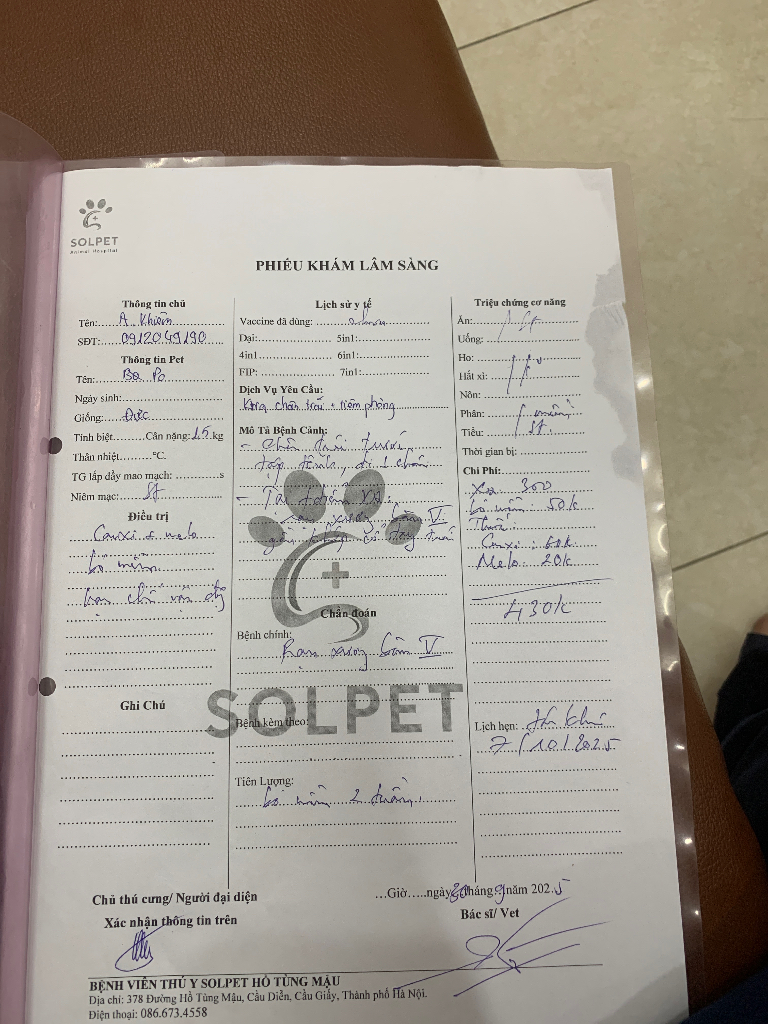 SOLPET
Animal Hospital
PHIẾU KHÁM LÂM SÀNG
Thông tin chủ
Tên: A Khiêm
SĐT: 0912049190
Thông tin Pet
Tên: Bơ Pơ
Ngày sinh:
Giống: Đức
Tính biệt Cân nặng: 15 kg
Thân nhiệt °C.
TG lấp đầy mao mạch: s
Niêm mạc:
Điều trị
Canxi & melo
bó mềm
hạn chế vận động
Ghi Chú
Lịch sử y tế
Vaccine đã dùng:
Dại: 5in1:
4in1 6in1:
FIP: 7in1:
Dịch Vụ Yêu Cầu:
chân trái + tiêm phòng
Mô Tả Bệnh Cảnh:
- Chân trái trước
tập tễnh, đi 1 chân
- Tại thăm
xương bàn V
gần khớp
Chẩn đoán
Bệnh chính:
Rạn xương bàn V
SOLPET
Bệnh kèm theo:
Tiên Lượng:
2 tuần
Triệu chứng cơ năng
Ăn:
Uống:
Ho:
Hắt xì:
Nôn:
Phân:
Tiểu:
Thời gian bị:
Chi Phí:
300
50k
Thuốc:
Canxi: 60k
Melo: 20k
430k
Lịch hẹn: tái khám
7/10/2025
Chủ thú cưng/ Người đại diện
Xác nhận thông tin trên
...Giờ.....ngày 30 tháng 9 năm 2025
Bác sĩ/ Vet
BỆNH VIỆN THÚ Y SOLPET HỒ TÙNG MẬU
Địa chỉ: 378 Đường Hồ Tùng Mậu, Cầu Diễn, Cầu Giấy, Thành phố Hà Nội.
Điện thoại: 086.673.4558